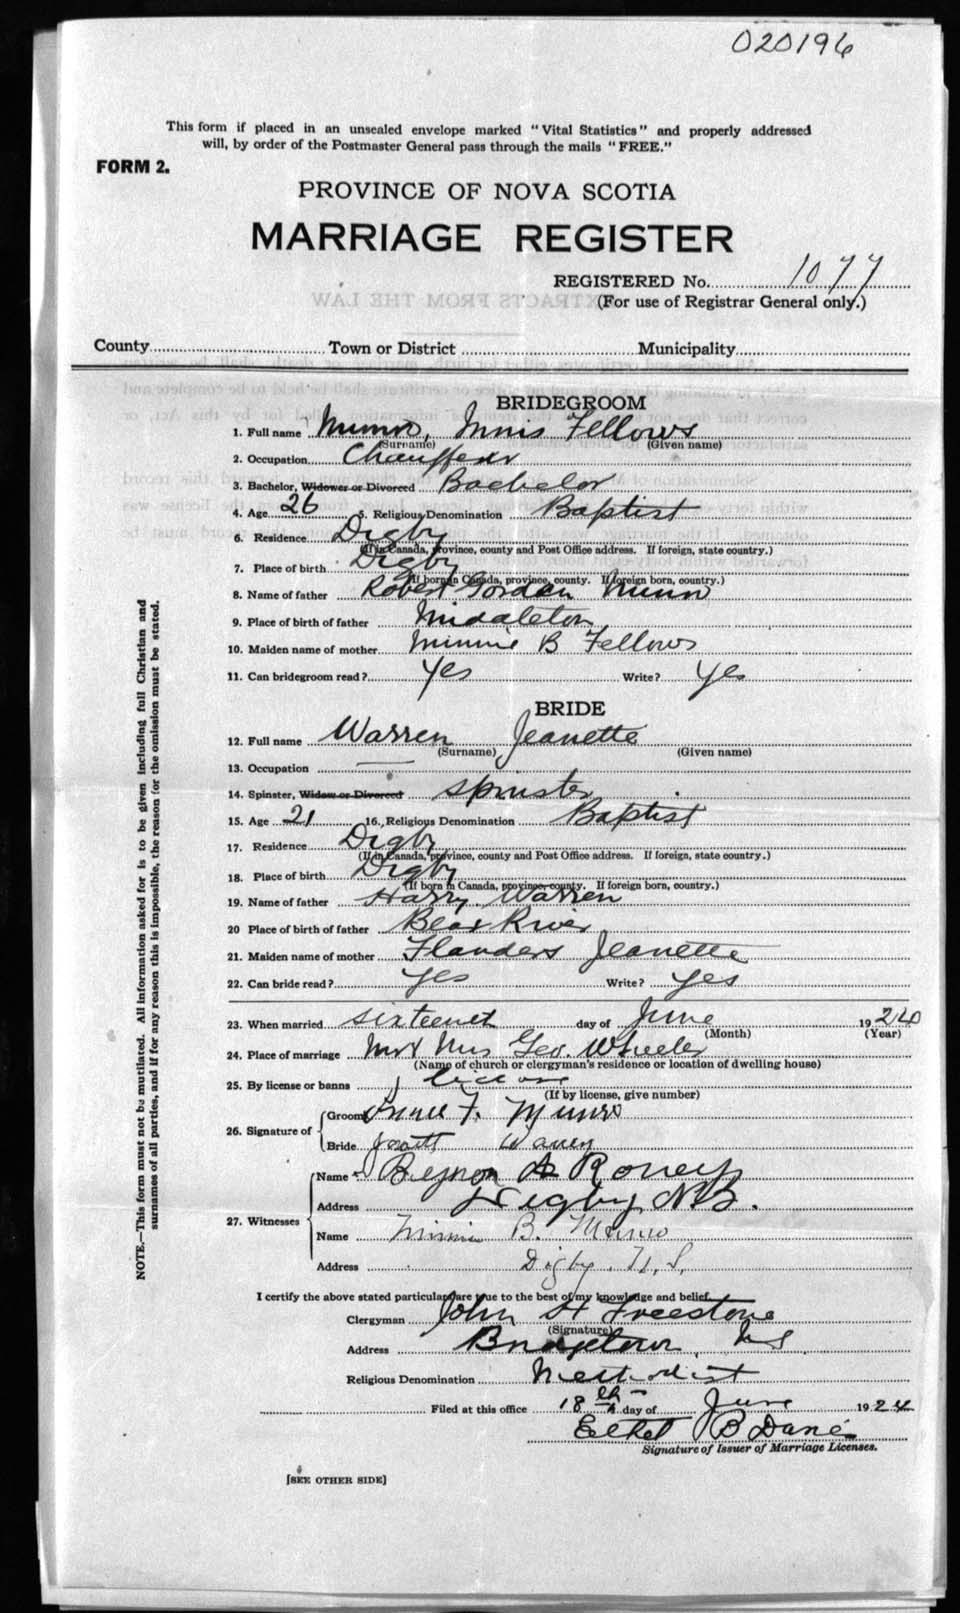 020196
This form if placed in an unsealed envelope marked "Vital Statistics" and properly addressed
will, by order of the Postmaster General pass through the mails "FREE."
FORM 2.
PROVINCE OF NOVA SCOTIA
MARRIAGE REGISTER
REGISTERED No. 1077
(For use of Registrar General only.)
County Town or District Municipality
BRIDEGROOM
1. Full name Munro, Innis Fellows
(Surname) (Given name)
2. Occupation Chauffeur
3. Bachelor, Widower or Divorced Bachelor
4. Age 26 5. Religious Denomination Baptist
6. Residence Digby
(If in Canada, province, county and Post Office address. If foreign, state country.)
7. Place of birth Digby
(If born in Canada, province, county. If foreign born, country.)
8. Name of father Robert Gordon Munro
9. Place of birth of father Middleton
10. Maiden name of mother Minnie B Fellows
11. Can bridegroom read? Yes Write? Yes
BRIDE
12. Full name Warren Jeanette
(Surname) (Given name)
13. Occupation
14. Spinster, Widow or Divorced Spinster
15. Age 21 16. Religious Denomination Baptist
17. Residence Digby
(If in Canada, province, county and Post Office address. If foreign, state country.)
18. Place of birth Digby
(If born in Canada, province, county. If foreign born, country.)
19. Name of father Harry Warren
20 Place of birth of father Bear River
21. Maiden name of mother Flanders Jeanette
22. Can bride read? Yes Write? Yes
23. When married sixteenth day of June 1924
(Month) (Year)
24. Place of marriage Mr & Mrs Geo. Wheeler
(Name of church or clergyman's residence or location of dwelling house)
25. By license or banns license
(If by license, give number)
26. Signature of
Groom F. Munro
Bride Warren
27. Witnesses
Name
Address Digby N.S.
Name Minnie B. Munro
Address Digby. N.S.
I certify the above stated particulars are true to the best of my knowledge and belief.
Clergyman John H Freestone
(Signature)
Address Bridgetown, N.S
Religious Denomination Methodist
Filed at this office 18th day of June 1924
Ethel B
Signature of Issuer of Marriage Licenses.
[SEE OTHER SIDE]
NOTE.—This form must not be mutilated. All information asked for is to be given including full Christian and
surnames of all parties, and if for any reason this is impossible, the reason for the omission must be stated.